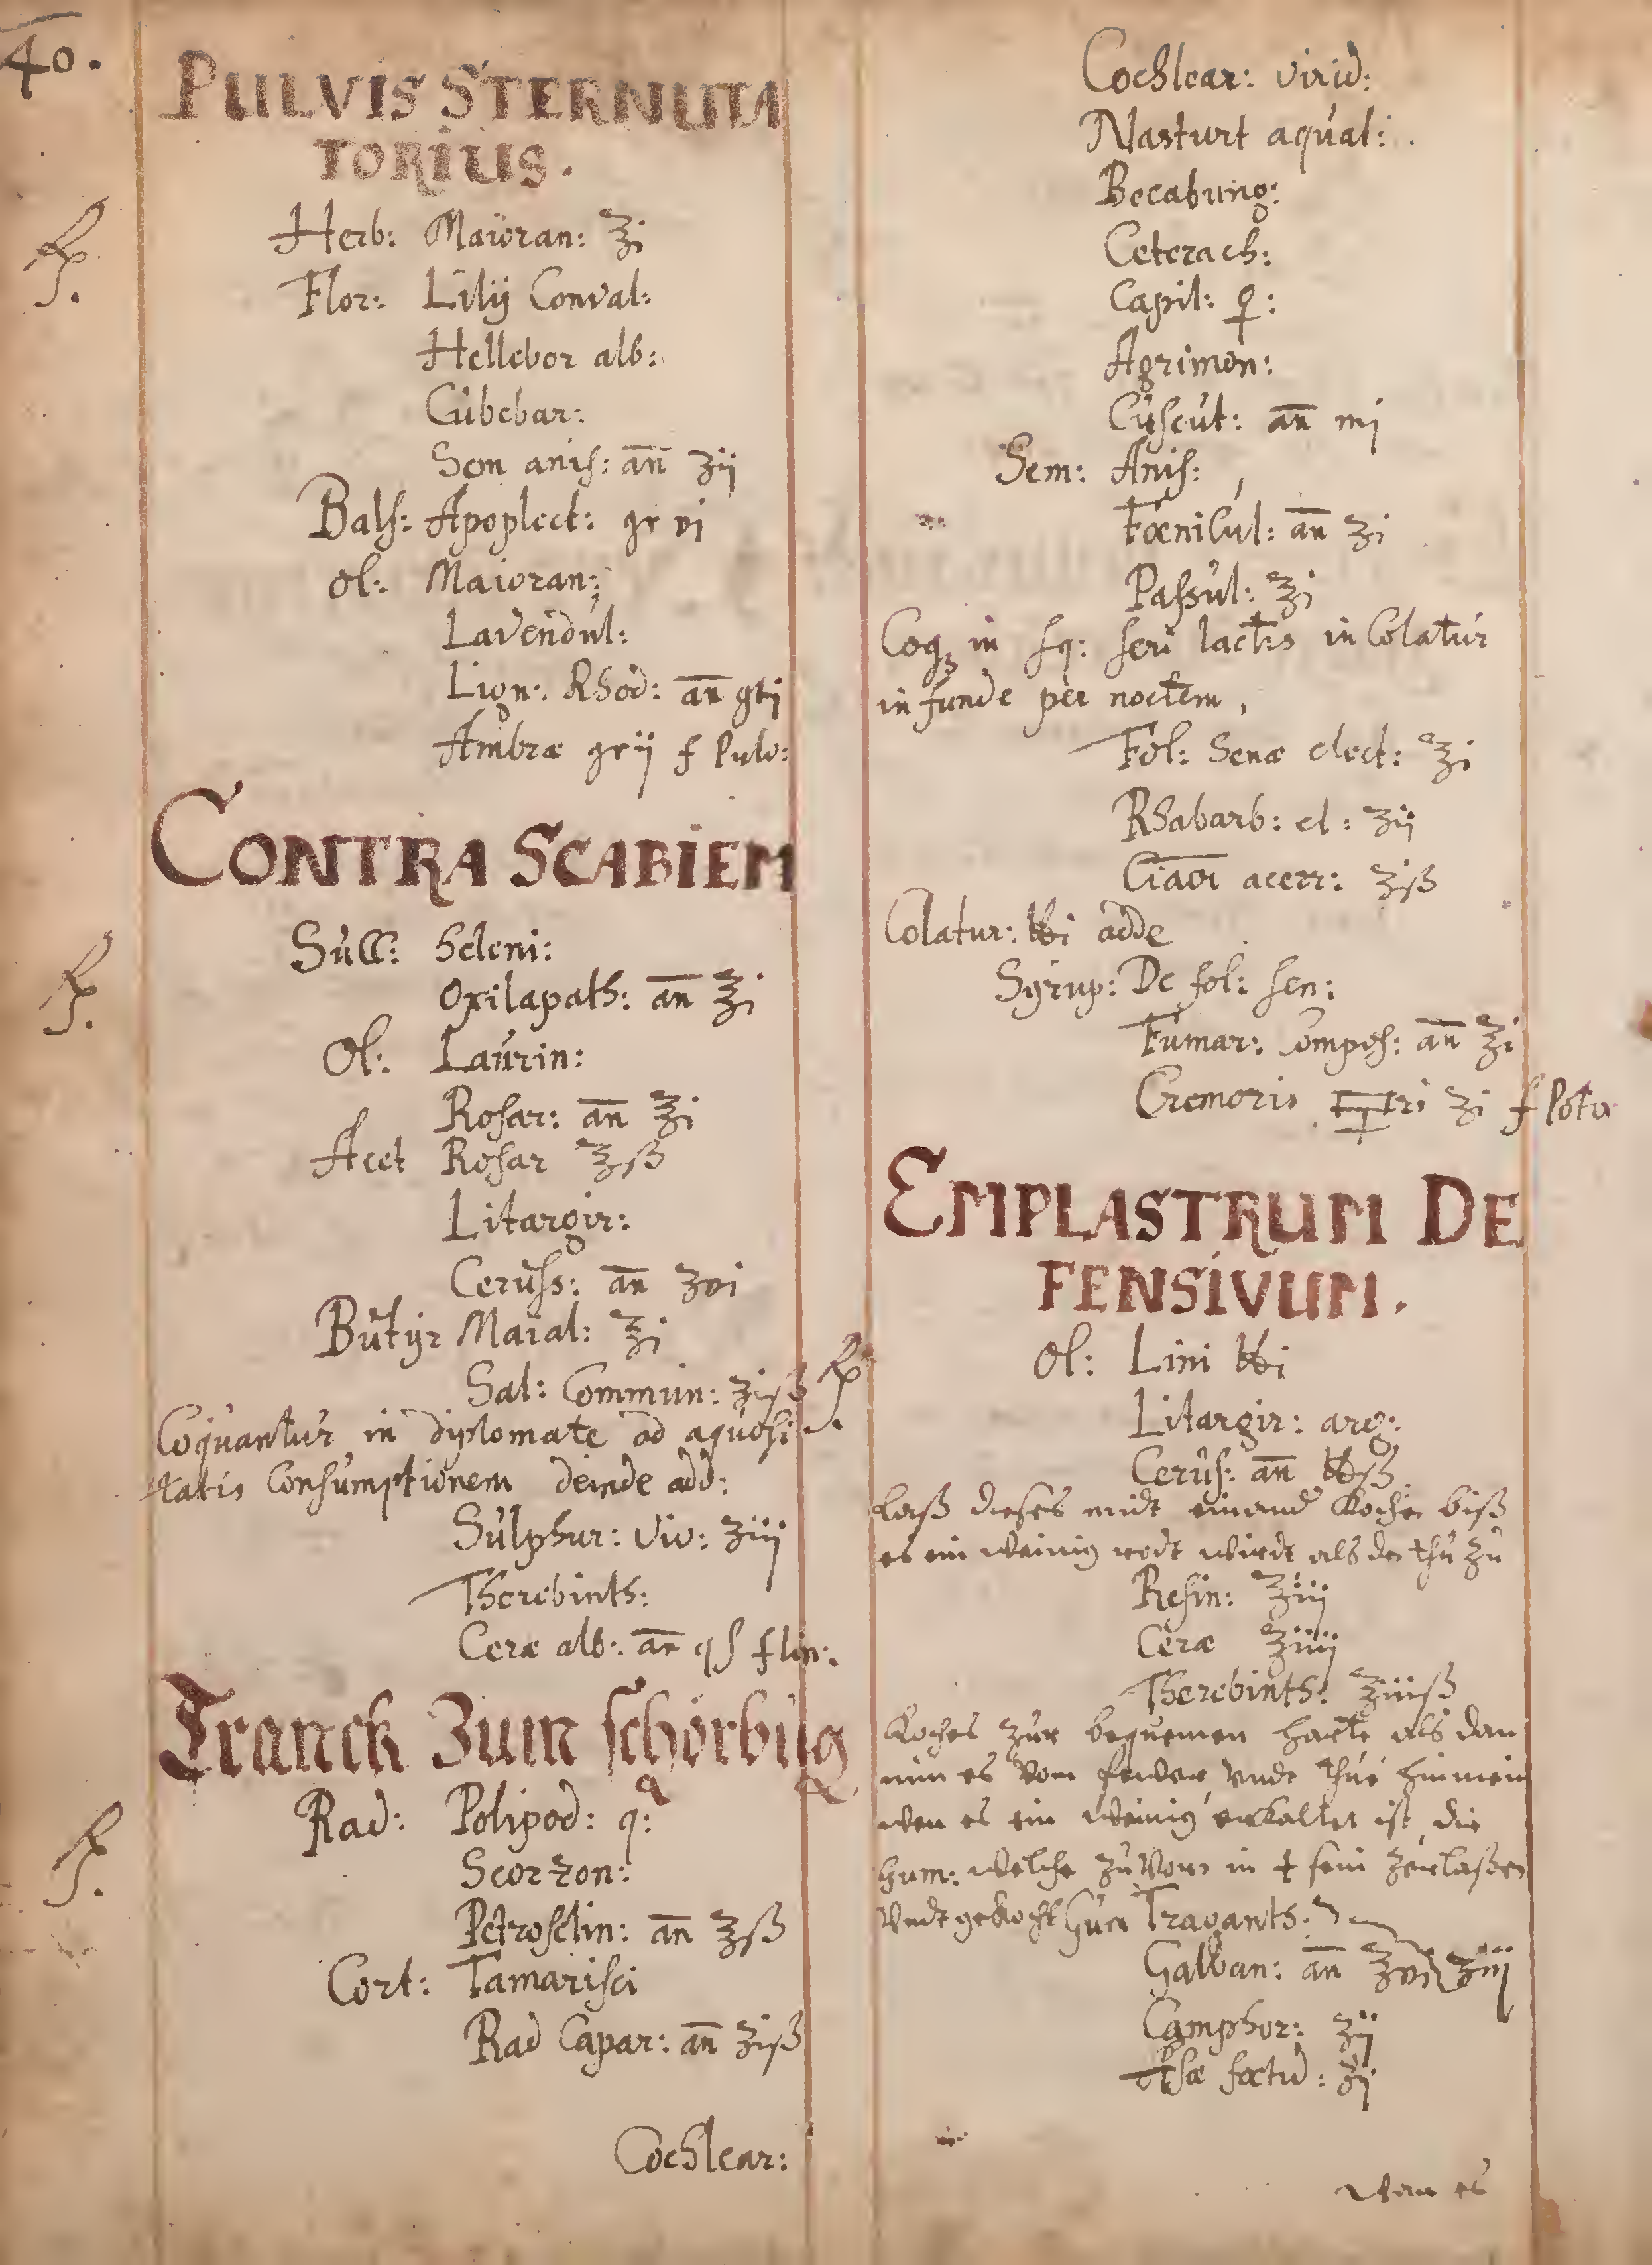 40.
PULVIS STERNUTA
TORIUS.
℞.
Herb: Maioran: ℥i
Flor: Lilij Conval:
Hellebor alb:
Cubebar:
Sem anis: an̄ ʒij
Bals: Apoplect: gr vi
ol: Maioran:
Lavendul:
Lign: Rhod: an̄ gtj
Ambræ grij f Pulv:
CONTRA SCABIEM
℞.
Succ: heleni:
Oxilapath: an̄ ℥i
Ol: Laurin:
Rosar: an̄ ℥i
Acet Rosar ℥ß
Litargir:
Ceruss: an̄ ʒvi
Butyr Maial: ℥i
Sal: Commun: ʒiß
Coquantur in diplomate ad aquosi
tatis Consumptionem deinde add:
Sulphur: viv: ʒiij
Therebinth:
Ceræ alb: an̄ qs f lin:
Tranck Zum schörbug
℞.
Rad: Polipod: q:
Scorzon:
Petroselin: an̄ ℥ß
Cort: Tamarisci
Rad Capar: an̄ ʒiß
Cochlear:
Cochlear: virid:
Nasturt aqual:
Becabung:
Ceterach:
Capil: ♀:
Agrimon:
Cuscut: an̄ mj
Sem: Anis:
Fœnicul: an̄ ʒi
Passul: ℥i
Coqȝ in sq: seri lactis in Colatur
infunde per noctem,
Fol: Senæ elect: ℥i
Rhabarb: el: ʒij
acerr: ʒiß
Colatur: ℔i adde
Syrup: De fol: sen:
Fumar: Compos: an̄ ℥i
Cremoris ri ʒi f Potu
EMPLASTRUM DE
FENSIVUM.
℞.
Ol: Lini ℔i
Litargir: arg:
Cerus: an̄ ℔ß
Laß dieses midt einand Kochen biß
es ein weinig rodt wirdt als den thu zu
Resin: ℥iij
Ceræ ℥iiij
Therebinth: ℥iiiß
Koches zur bequemen harte als dan
nim es vom feuer unde thue hinnein
wen es ein weinig erkaltet ist, die
Gum: welche zuvorn in sein zerlaßen
undt gekocht Gum Tragants:
Galban: an̄ ℥vi ℥iij
Camphor: ʒij
Asæ fœtid: ʒij
wan es